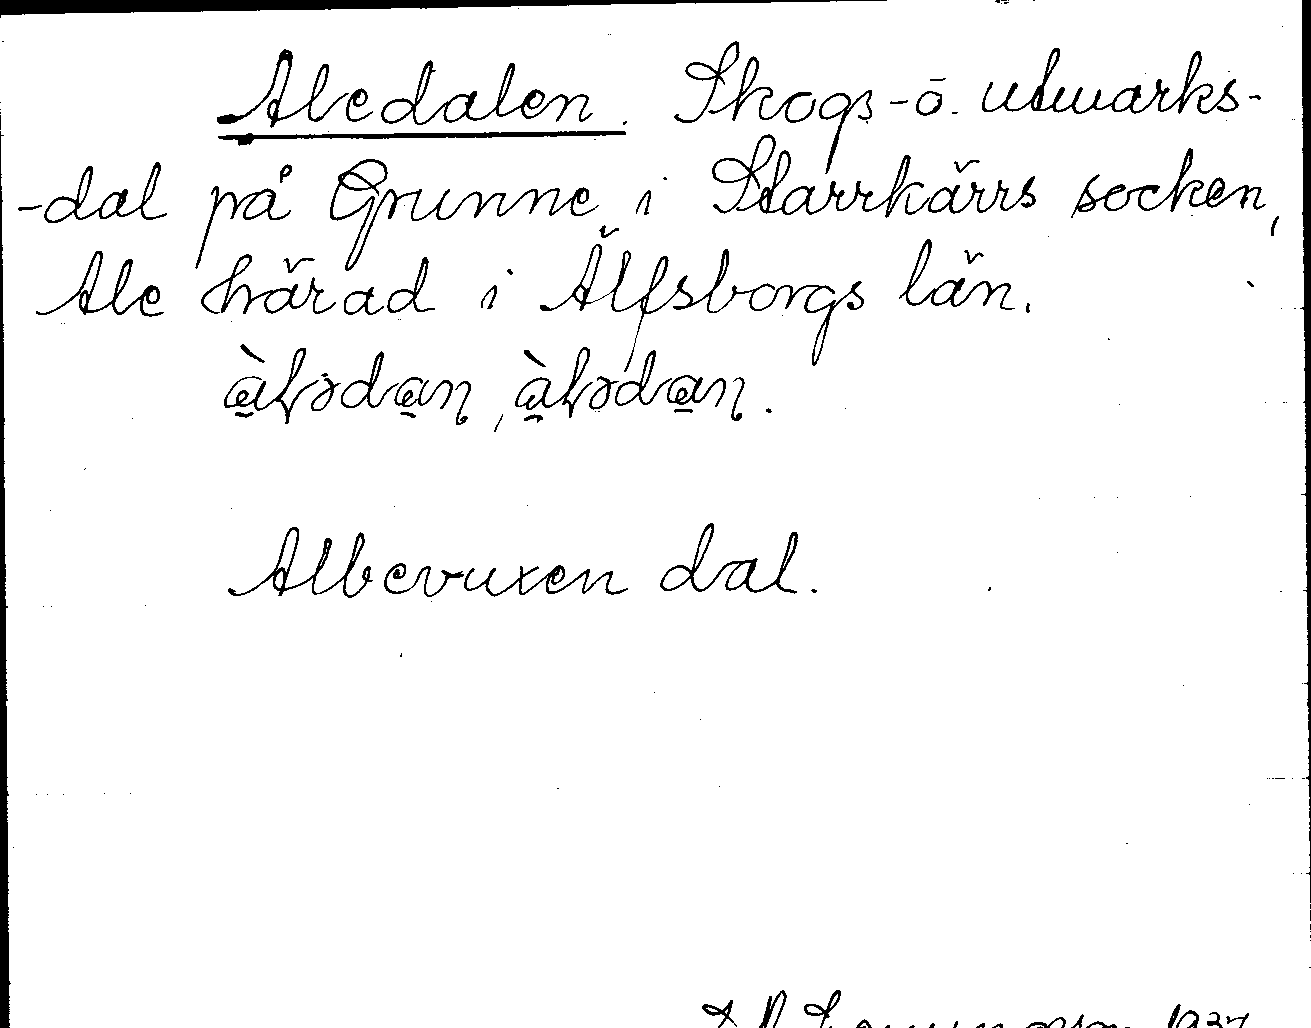 Aledalen. Skogs- ō. utmarks-
-dal på Grunne i Starrkärrs socken,
Ale härad i Älfsborgs län.
Albevuxen dal.
1937